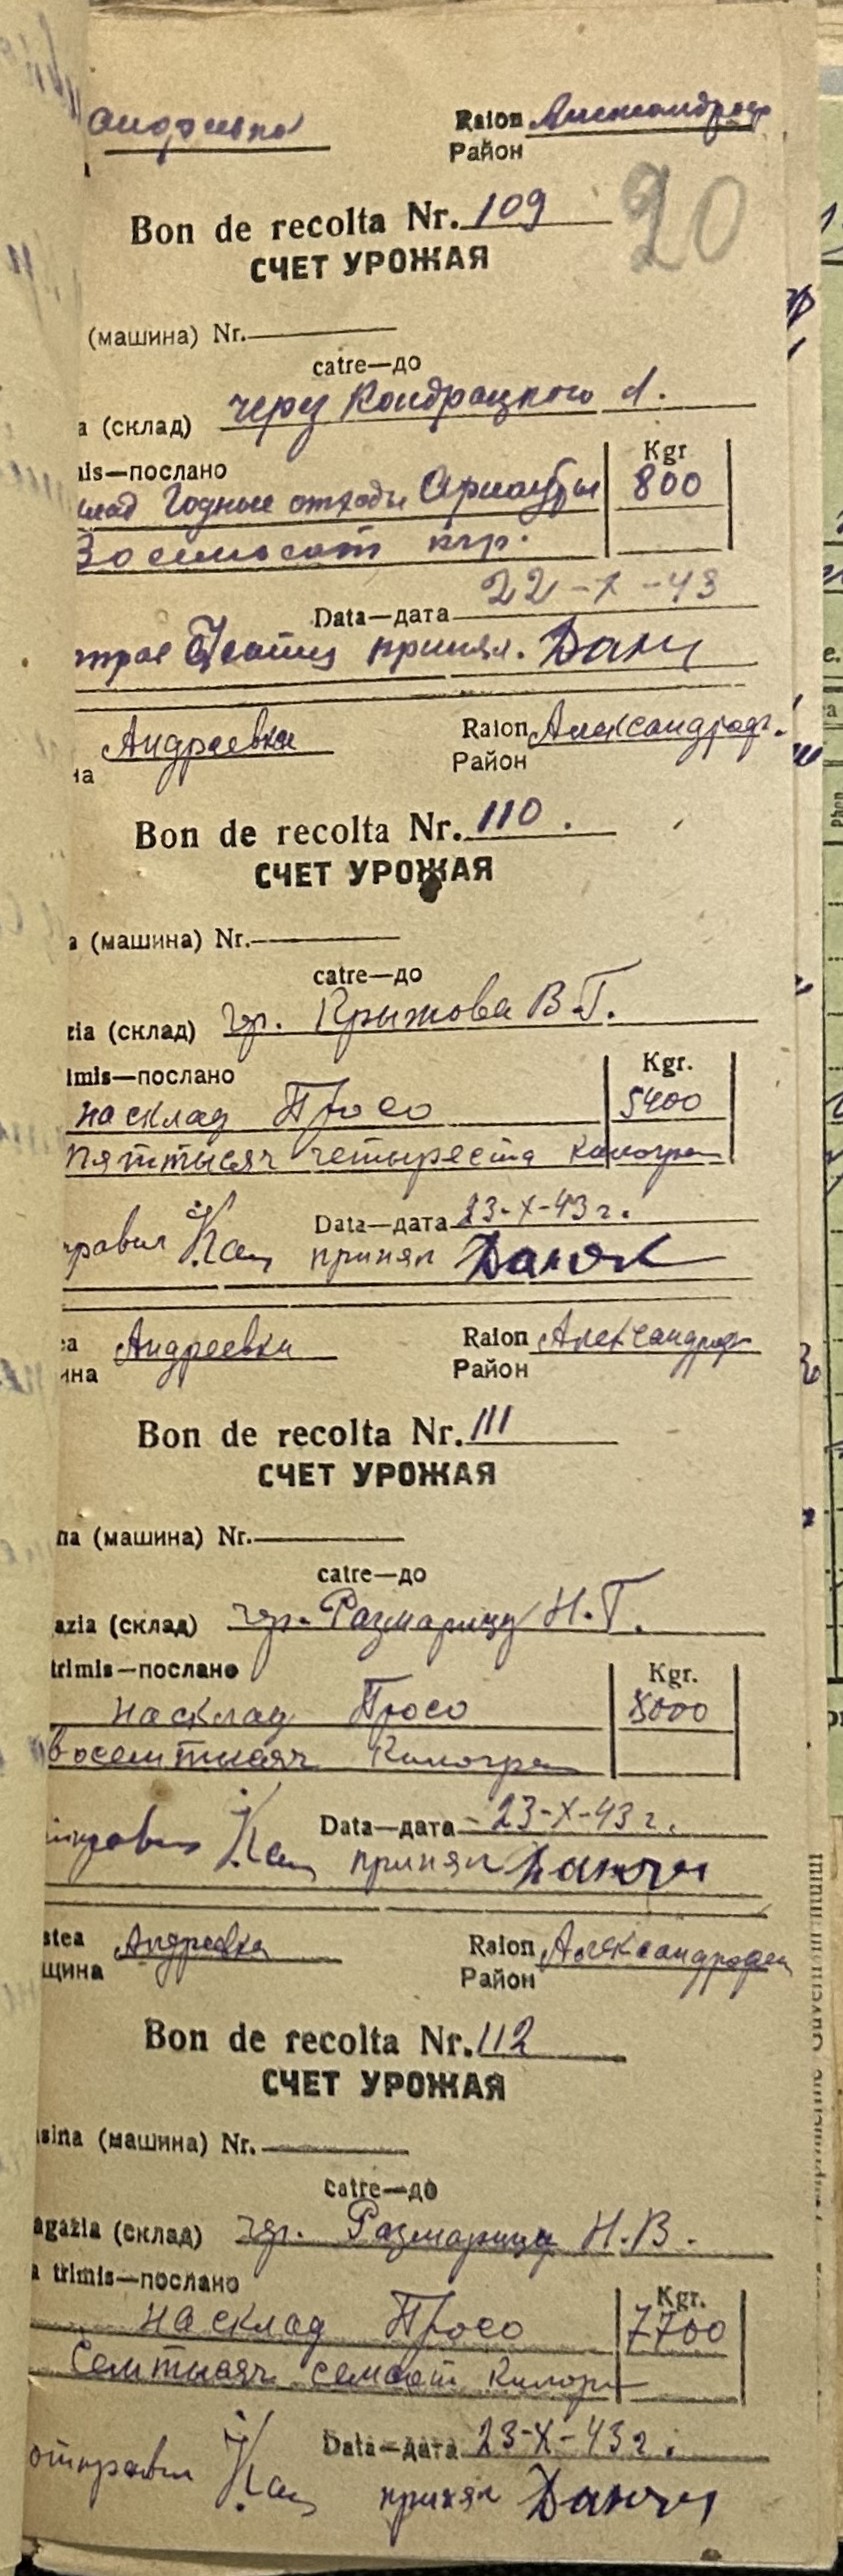 Андреевка Raion Александроф
Район
20
Bon de recolta Nr. 109
СЧЕТ УРОЖАЯ
(машина) Nr.
catre—до
a (склад) через Кондрацкого А.
is—послано Kgr
склад Годные отходы Арнаутки 800
Восемьсот кгр.
Data—дата 22-X-43
принял.
Андреевка Raion Александроф.
на Район
Bon de recolta Nr. 110.
СЧЕТ УРОЖАЯ
а (машина) Nr.
catre—до
zia (склад) гр. Крыжова В.Г.
imis—послано Kgr.
на склад Просо 5400
пяттысяч четыреста килогра
Data—дата 23-X-43 г.
правил Кац принял Данюк
ea Андреевка Raion Александроф
ина Район
Bon de recolta Nr. 111
СЧЕТ УРОЖАЯ
na (машина) Nr.
catre—до
azia (склад) гр. Размарицу Н.Г.
trimis—послано Kgr.
на склад Просо 8000
восемтысяч килогра
Data—дата 23-X-43 г.
Кац принял
stea Андреевка Raion Александроф
щина Район
Bon de recolta Nr. 112
СЧЕТ УРОЖАЯ
sina (машина) Nr.
catre—до
agazia (склад) гр. Размарицу Н.В.
a trimis—послано Kgr.
на склад Просо 7700
Семтысяч семсот килогр
Data—дата 23-X-43 г.
отправил Кац принял